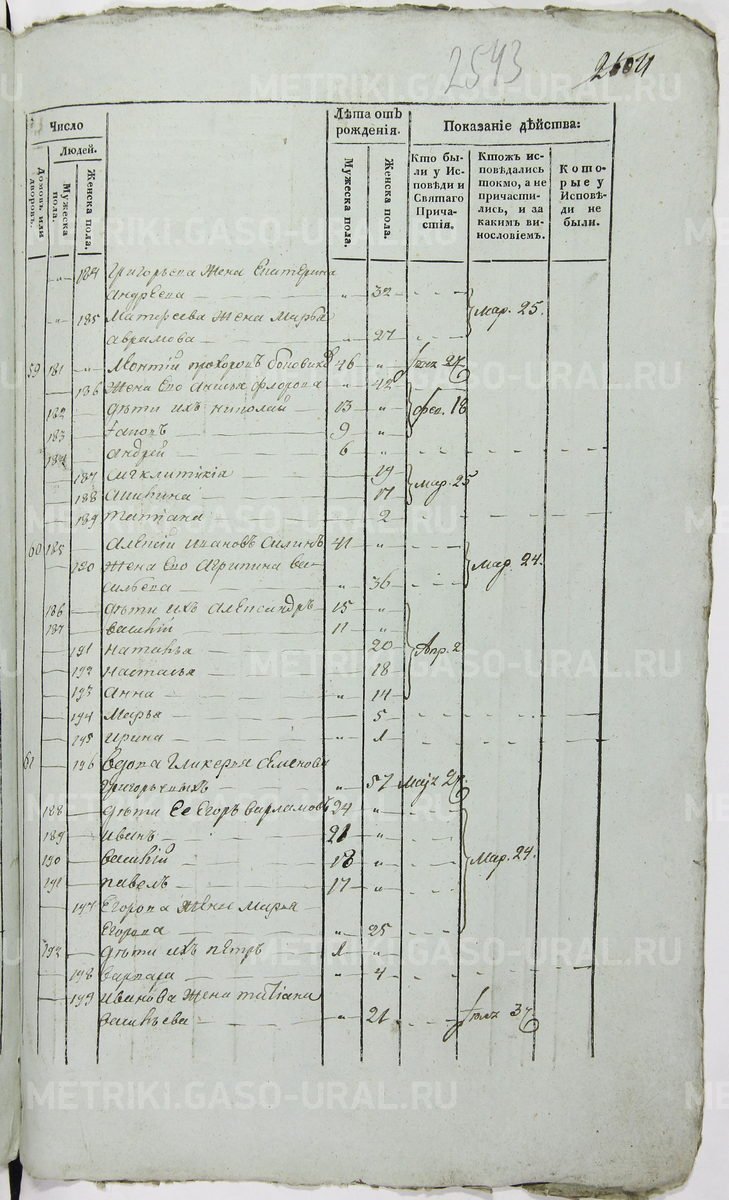 2593
METRIKI.GASO-URAL.RU
Число
Людей.
Домовъ или дворовъ.
Мужеска пола.
Женска пола.
Лѣта отъ рожденія.
Мужеска пола.
Женска пола.
Показаніе дѣйства:
Кто были у Исповѣди и Святаго Причастія.
Ктожъ исповѣдались токмо, а не причастились, и за какимъ винословіемъ.
Которые у Исповѣди не были.
184 Григорьева жена Екатерина
Андреева 32
185 Матвеева жена Марья
Аврамова 27
Мар. 25.
59 181 Прохоровъ 46
жена его Анисья Флорова 42
182 дѣти ихъ Николай 13
фев. 18
183 9
184 Андрей 6
187 Сигклитикія 19
188 17
Мар. 25
189 Татіана 2
60 185 Алексій Ивановъ Силинъ 41
190 жена его Агрипина Ва-
сильева 36
Мар. 24.
186 дѣти ихъ Александръ 15
187 Василій 11
191 Наталья 20
192 Настасья 18
193 Анна 14
Апр. 2
194 Марья 5
195 Ирина 1
61 196 вдова Гликерья Семенова
57
188 дѣти ее Егоръ Варламовъ 24
189 Иванъ 21
190 Василій 18
191 Павелъ 17
Мар. 24.
197 Егорова жена Марья
Егорова 25
192 дѣти ихъ Петръ 1
198 Варвара 4
199 Иванова жена Татіана
Васильева 21